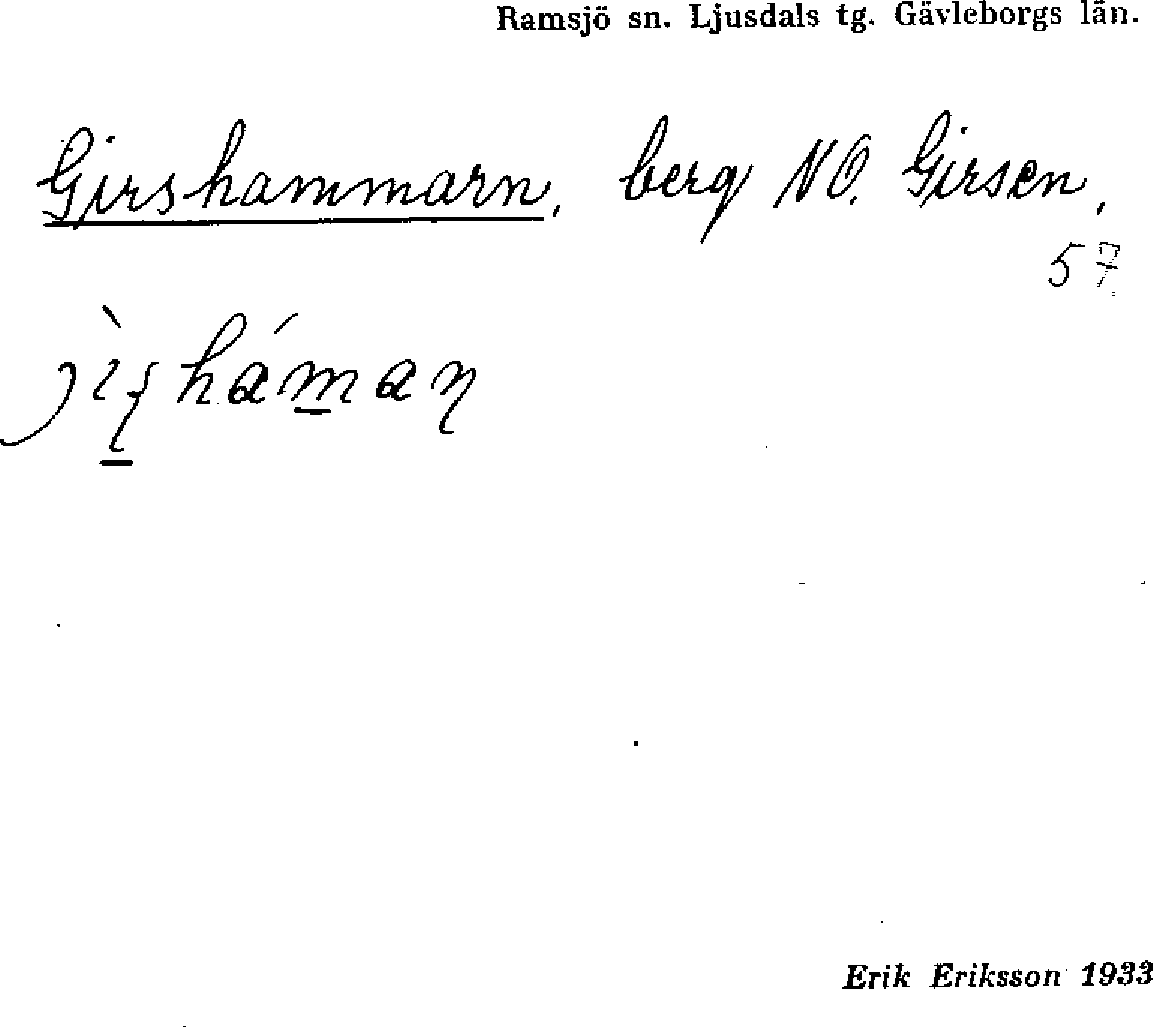 Ramsjö sn. Ljusdals tg. Gävleborgs län.
Girshammarn, berg NO. Girsen,
57
Erik Eriksson 1933